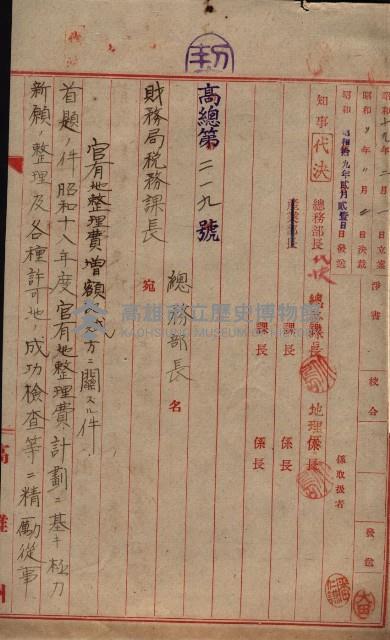 昭和十 年 二 月 日立案 淨書 校合 發送
昭和 年 月 日決裁
昭和拾九年貳月貳壹日發送
知事 代決 總務部長 代決 總務課長 地理係長 係取扱者
產業部長 課長 係長
課長 係長
高總第二一九號
總務部長 名
財務局稅務課長 宛
官有地整理費增額 方ニ關スル件
首題ノ件昭和十八年度官有地整理費計劃ニ基キ極力
新願ノ整理及各種許可地ノ成功檢查等ニ精勵從事
高雄州
高雄市立歷史博物館
KAOHSIUNG MUSEUM OF HISTORY